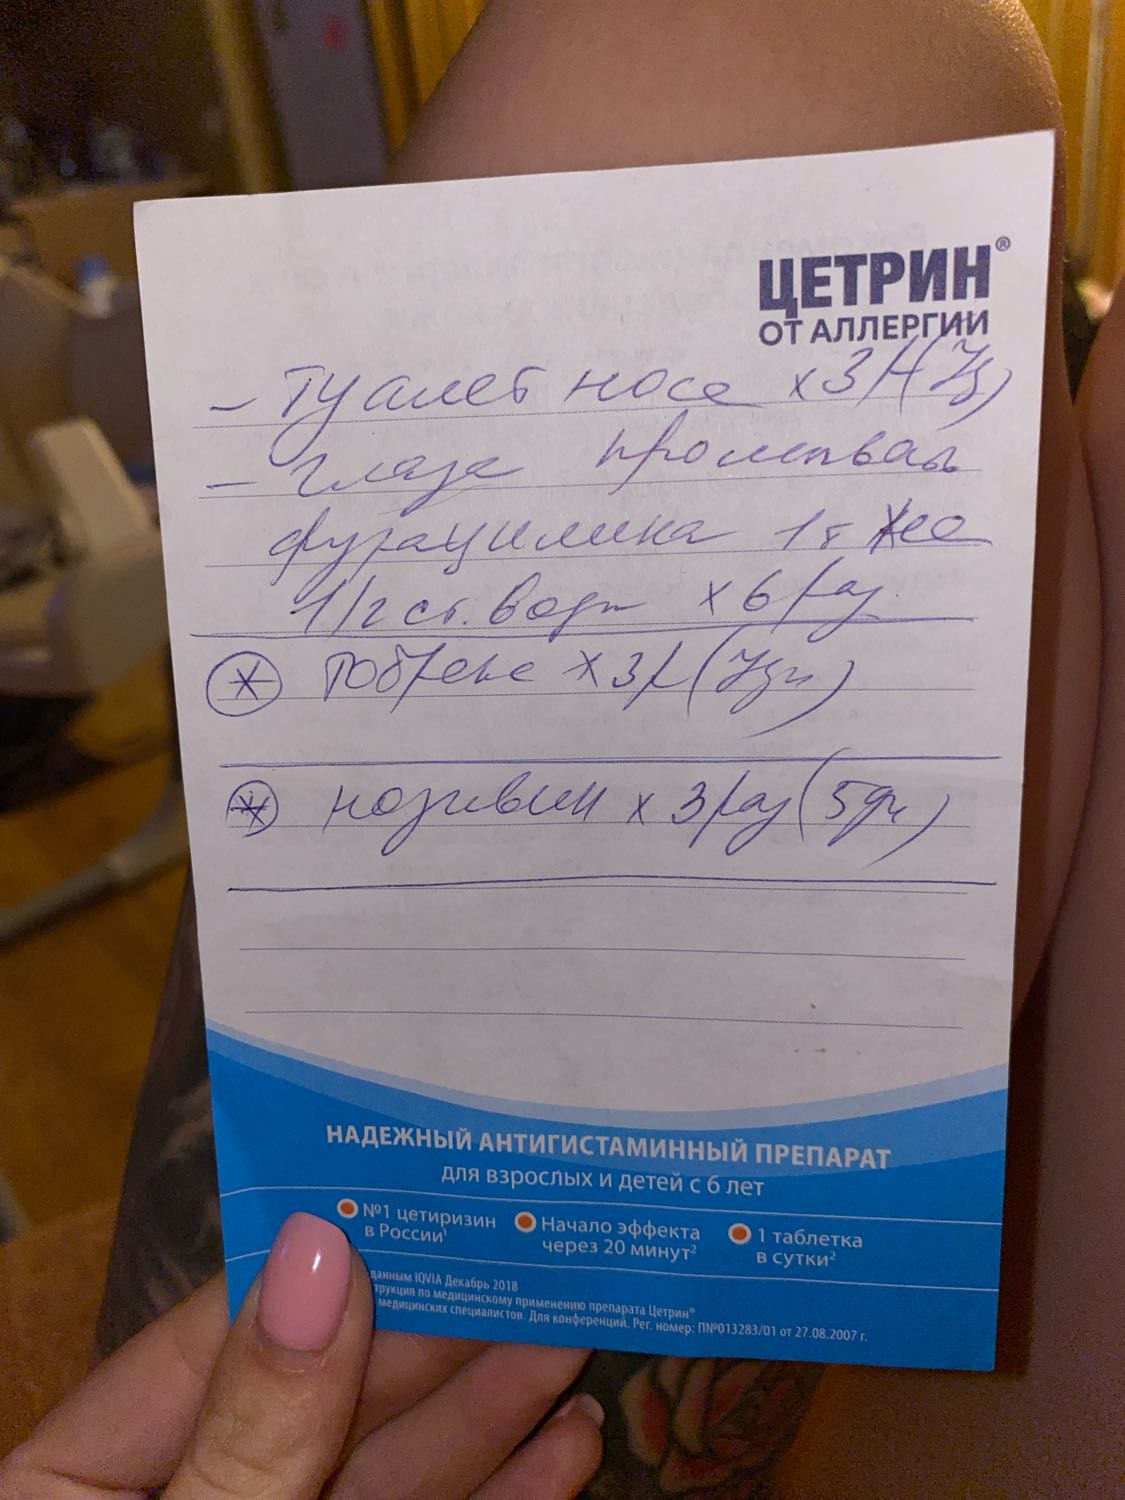 ЦЕТРИН®
ОТ АЛЛЕРГИИ
- туалет носа х 3
- глаза промывать
фурацилина 1т на
1/2 ст. воды х 6 раз
тобрекс х 3р (7дн)
називин х 3 раз (5дн)
НАДЕЖНЫЙ АНТИГИСТАМИННЫЙ ПРЕПАРАТ
для взрослых и детей с 6 лет
№1 цетиризин
в России¹
Начало эффекта
через 20 минут²
1 таблетка
в сутки²
данным IQVIA Декабрь 2018
трукция по медицинскому применению препарата Цетрин®
медицинских специалистов. Для конференций. Рег. номер: П№013283/01 от 27.08.2007 г.